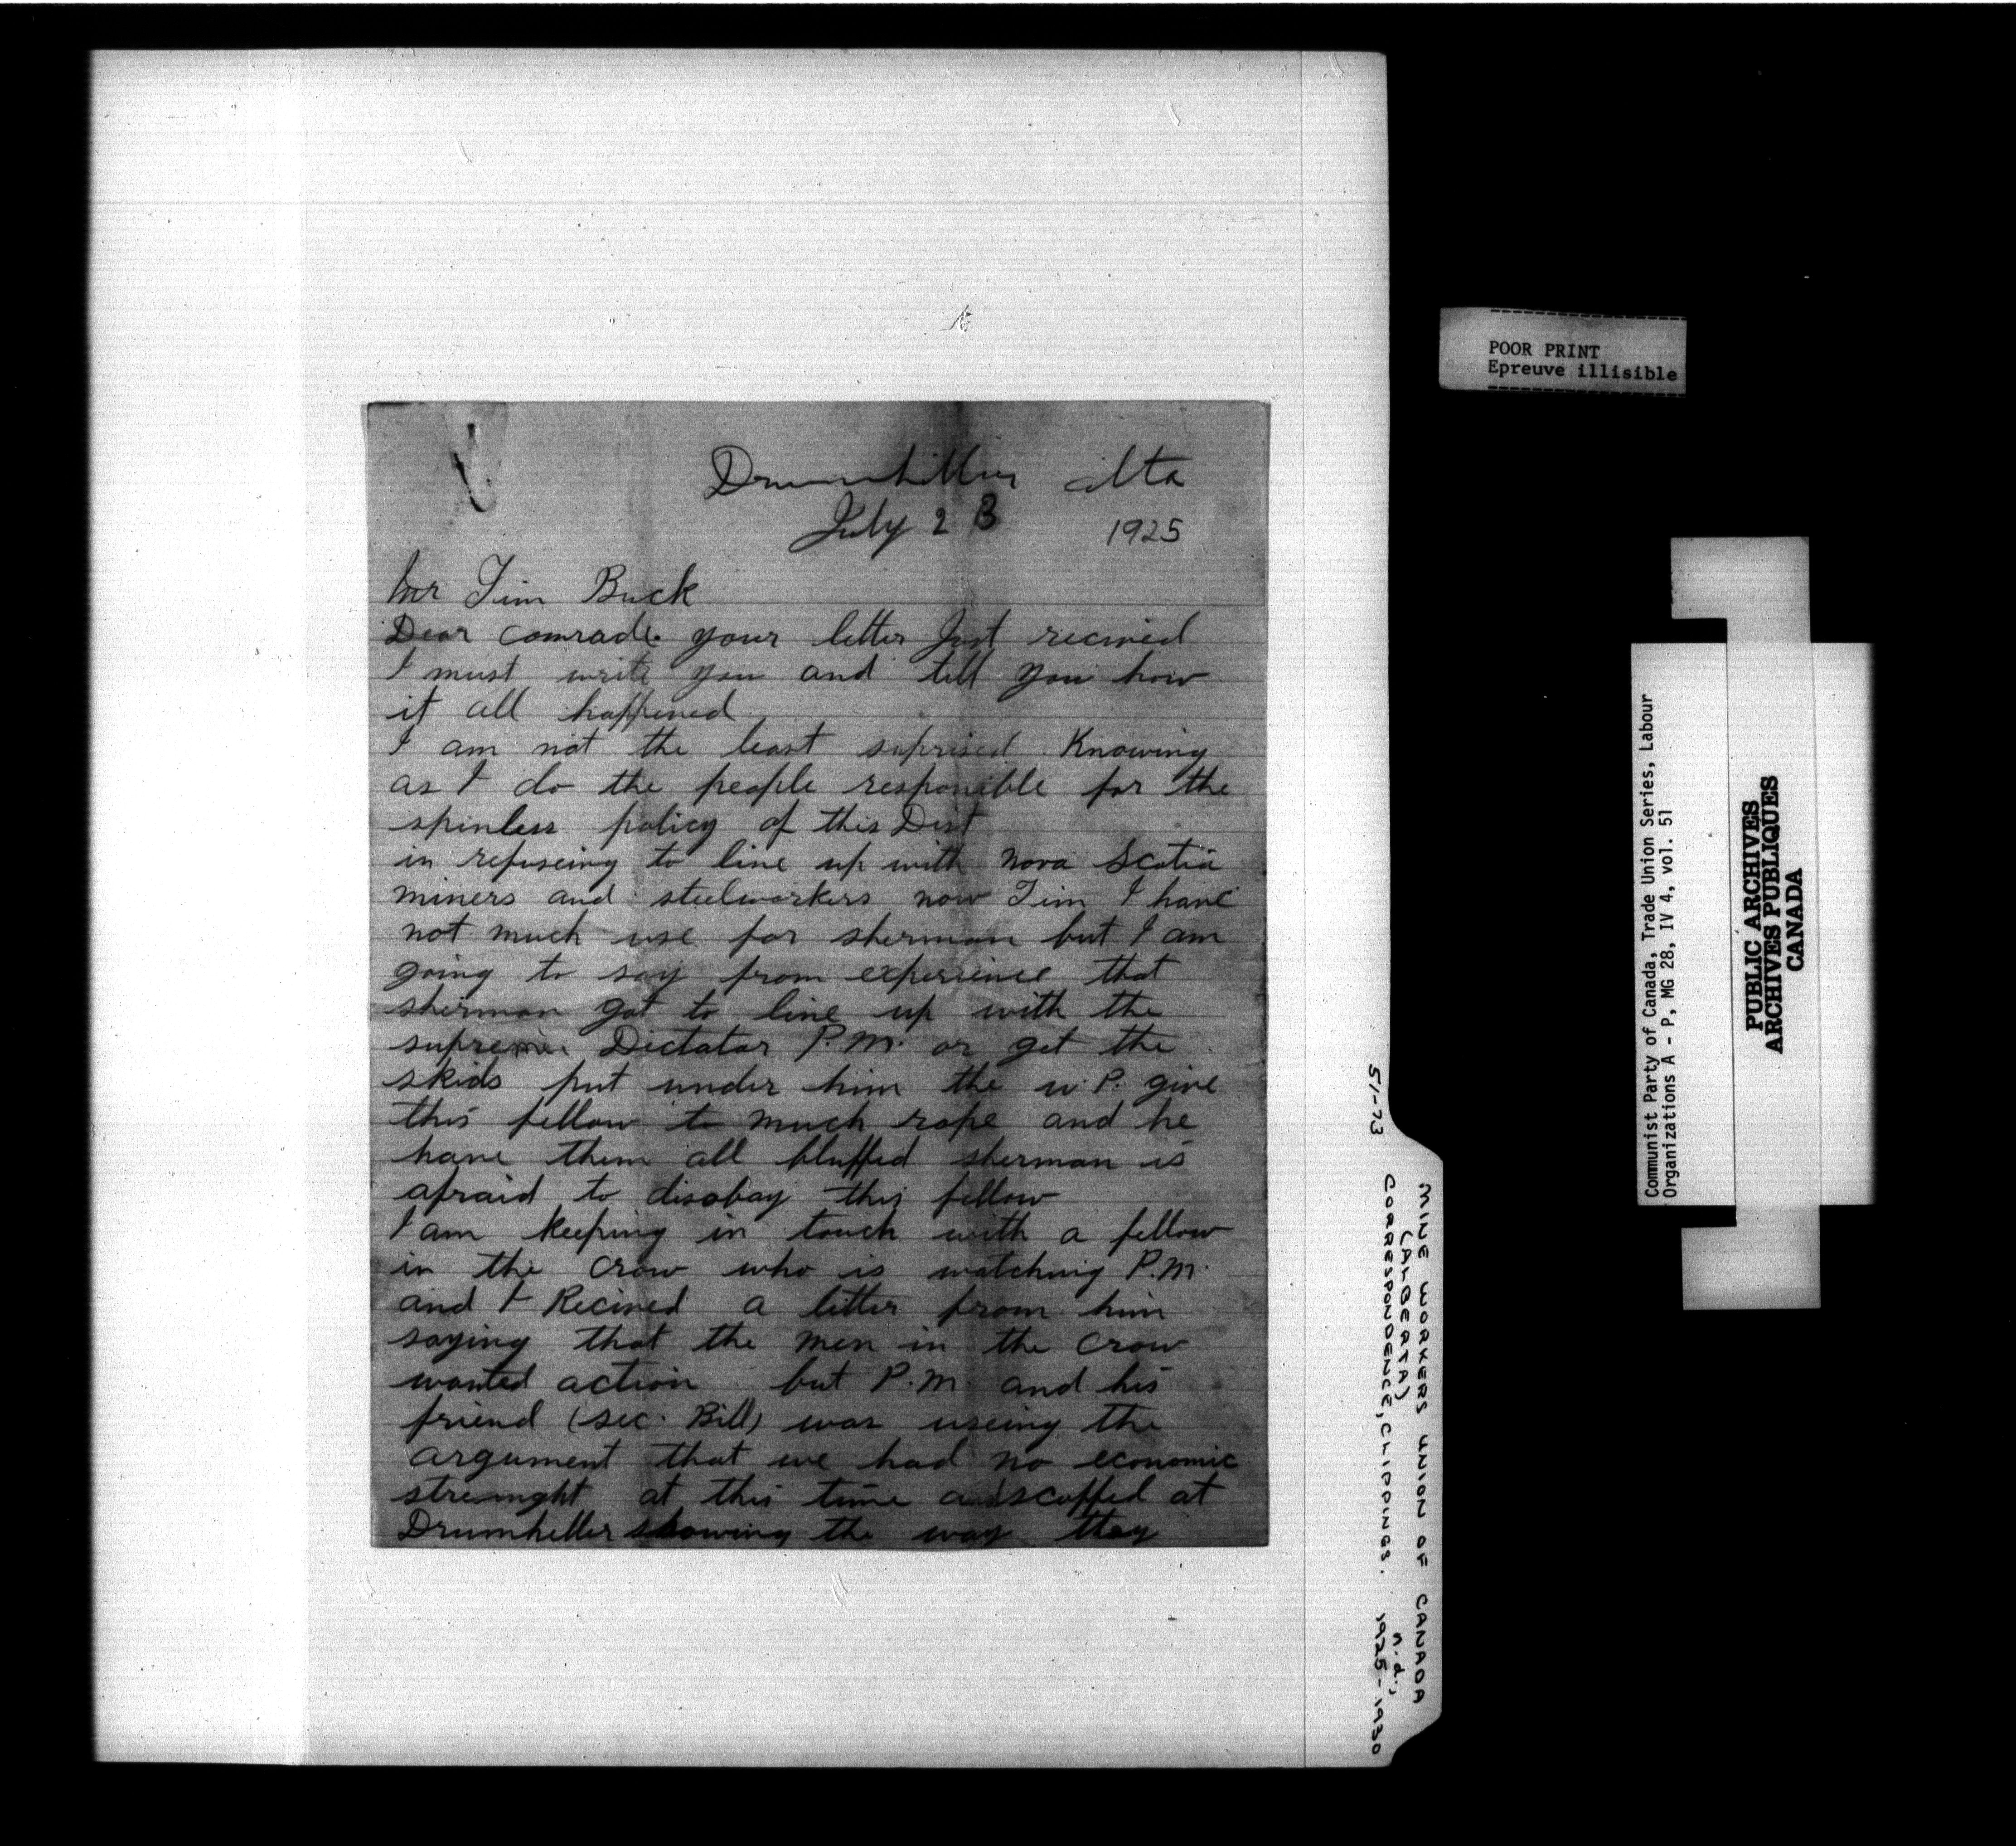 Drumheller Alta
July 23 1925
Mr Tim Buck
Dear Comrade your letter Just recived
I must write you and tell you how
it all happened
I am not the least suprised Knowing
as I do the people responsible for the
spinless policy of this Dist
in refuseing to line up with nova Scotia
miners and steelworkers now Tim I have
not much use for sherman but I am
going to say from experience that
sherman got to line up with the
supreme Dictator P.M. or get the
skids put under him the W.P. give
this fellow to much rope and he
have them all bluffed sherman is
afraid to disobay this fellow
I am keeping in touch with a fellow
in the Crow who is watching P.M.
and I Recived a letter from him
saying that the men in the Crow
wanted action but P.M. and his
friend (sec. Bill) was useing the
argument that we had no economic
strenght at this time and scoffed at
Drumheller showing the way they
51-73 MINE WORKERS UNION OF CANADA
(ALBERTA) n.d.,
CORRESPONDENCE, CLIPPINGS. 1925-1930
POOR PRINT
Epreuve illisible
Communist Party of Canada, Trade Union Series, Labour
Organizations A - P, MG 28, IV 4, vol. 51
PUBLIC ARCHIVES
ARCHIVES PUBLIQUES
CANADA